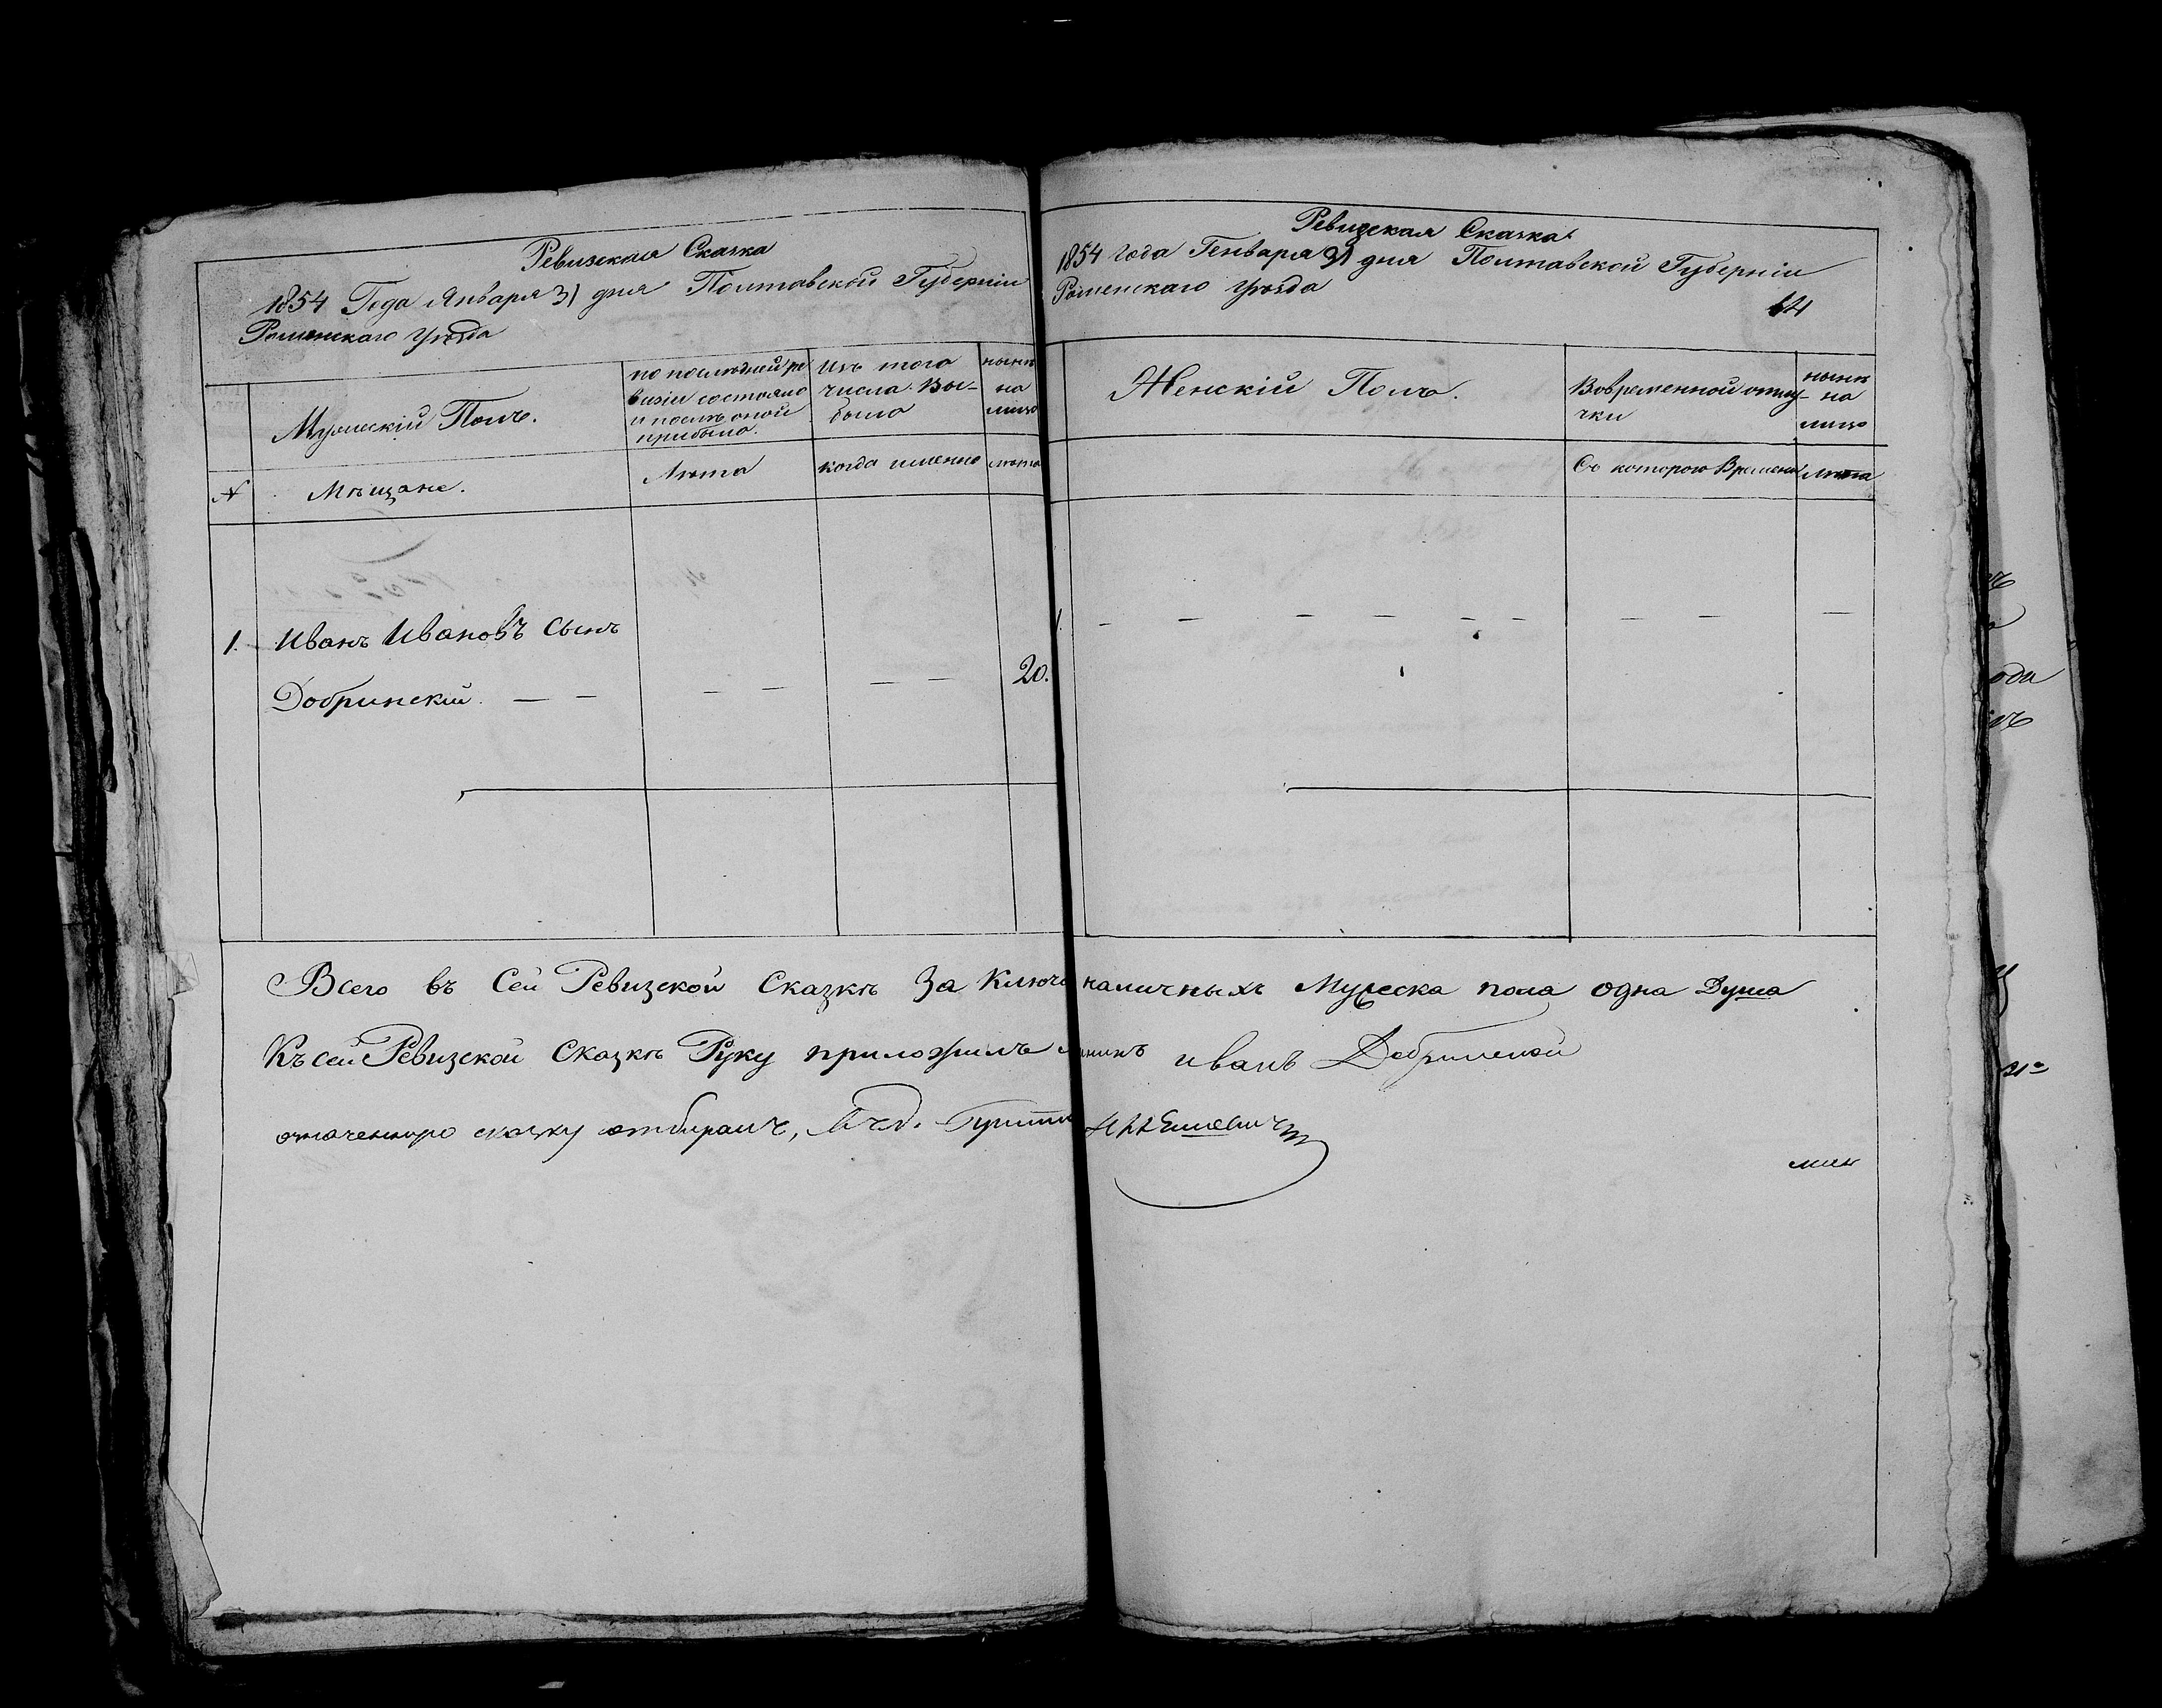 Ревизская Сказка
1854 Года Января 31 дня Полтавской Губерніи
Роменскаго уѣзда
Мужескій Полъ.
по последней ре
визіи состояло
и послѣ оной
прибыло.
Изъ того
числа Вы-
было
нынѣ
на
лицо
№
Мѣщане.
Лѣта
когда именно
лѣта
1.
Иванъ Ивановъ Сынъ
Добринскій. — —
— —
— —
20.
Ревизская Сказка
1854 года Генваря 31 дня Полтавской Губерніи
Роменскаго уѣзда
14
Женскій Полъ.
Вовременной отлу-
чки
нынѣ
на
лицо
Съ котораго Времени
лѣта
1.
— — — — — —
— —
—
Всего въ Сей Ревизской Сказкѣ За Ключ наличныхъ Мужеска пола одна Душа
Къ сей Ревизской Сказкѣ Руку приложилъ иванъ Добринской
сказку отбиралъ,